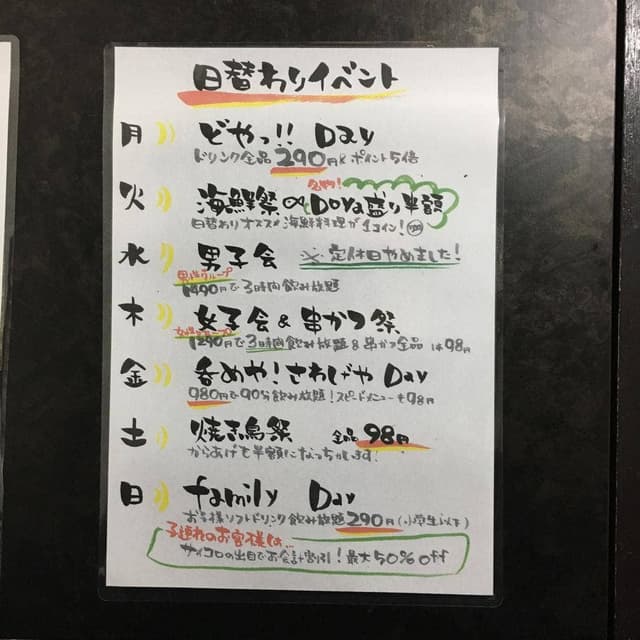 日替わりイベント
月 どやっ!! Day
ドリンク全品 290円& ポイント5倍
火 海鮮祭 or Doya盛り半額
名物!
日替わりオススメ海鮮料理が1コイン!
水 男子会 ※定休日やめました!
男性グループ
1490円で3時間飲み放題
木 女子会 & 串かつ祭
1290円で3時間飲み放題 & 串かつ全品 1本98円
金 呑めや!さわげや Day
980円で90分飲み放題!スピードメニューも98円
土 焼き鳥祭 全品 98円
からあげも半額になっちゃいます!
日 family Day
お子様ソフトドリンク飲み放題 290円(小学生以下)
子連れのお客様は…
サイコロの出目でお会計割引!最大50%off